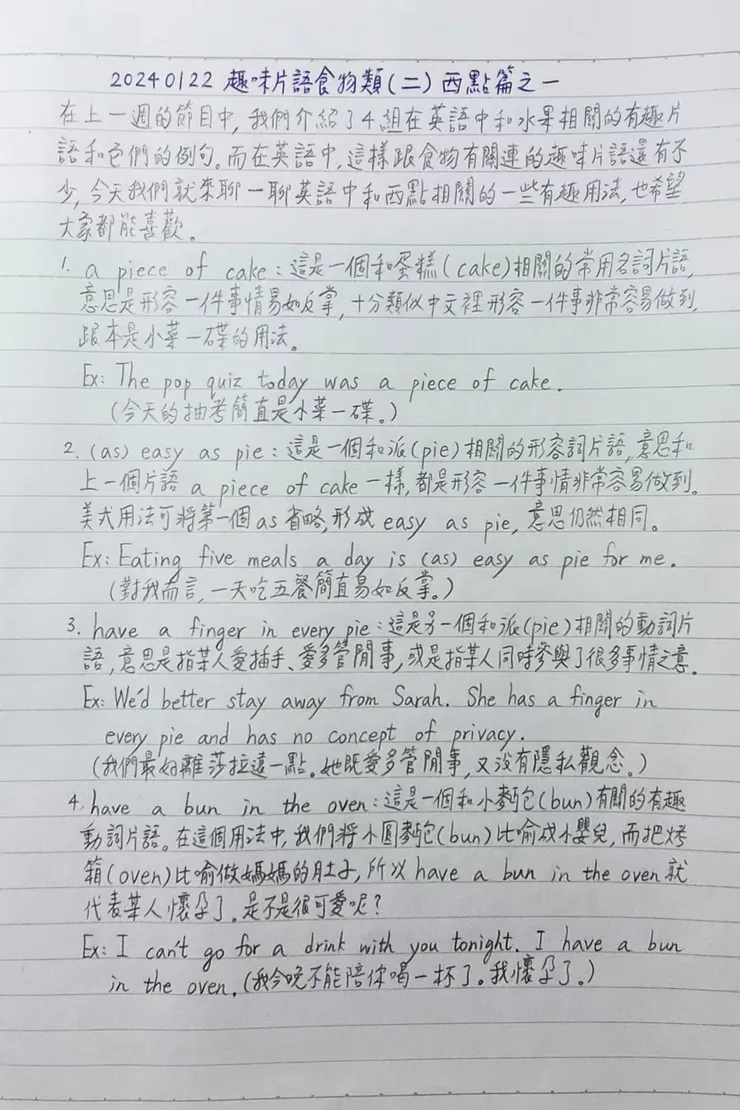 20240122 趣味片語食物類(二) 西點篇之一
在上一週的節目中, 我們介紹了4組在英語中和水果相關的有趣片
語和它們的例句。而在英語中, 這樣跟食物有關連的趣味片語還有不
少, 今天我們就來聊一聊英語中和西點相關的一些有趣用法, 也希望
大家都能喜歡。
1. a piece of cake : 這是一個和蛋糕(cake)相關的常用名詞片語,
意思是形容一件事情易如反掌, 十分類似中文裡形容一件事非常容易做到,
跟本是小菜一碟的用法。
Ex: The pop quiz today was a piece of cake.
(今天的抽考簡直是小菜一碟。)
2. (as) easy as pie : 這是一個和派(pie)相關的形容詞片語, 意思和
上一個片語 a piece of cake 一樣, 都是形容一件事情非常容易做到。
美式用法可將第一個as省略, 形成 easy as pie, 意思仍然相同。
Ex: Eating five meals a day is (as) easy as pie for me.
(對我而言, 一天吃五餐簡直易如反掌。)
3. have a finger in every pie : 這是另一個和派(pie)相關的動詞片
語, 意思是指某人愛插手、愛多管閒事, 或是指某人同時參與了很多事情之意。
Ex: We'd better stay away from Sarah. She has a finger in
every pie and has no concept of privacy.
(我們最好離莎拉遠一點。她既愛多管閒事, 又沒有隱私觀念。)
4. have a bun in the oven : 這是一個和小麵包(bun)有關的有趣
動詞片語。在這個用法中, 我們將小圓麵包(bun)比喻成小嬰兒, 而把烤
箱(oven)比喻做媽媽的肚子, 所以 have a bun in the oven 就
代表某人懷孕了, 是不是很可愛呢?
Ex: I can't go for a drink with you tonight. I have a bun
in the oven. (我今晚不能陪你喝一杯了。我懷孕了。)